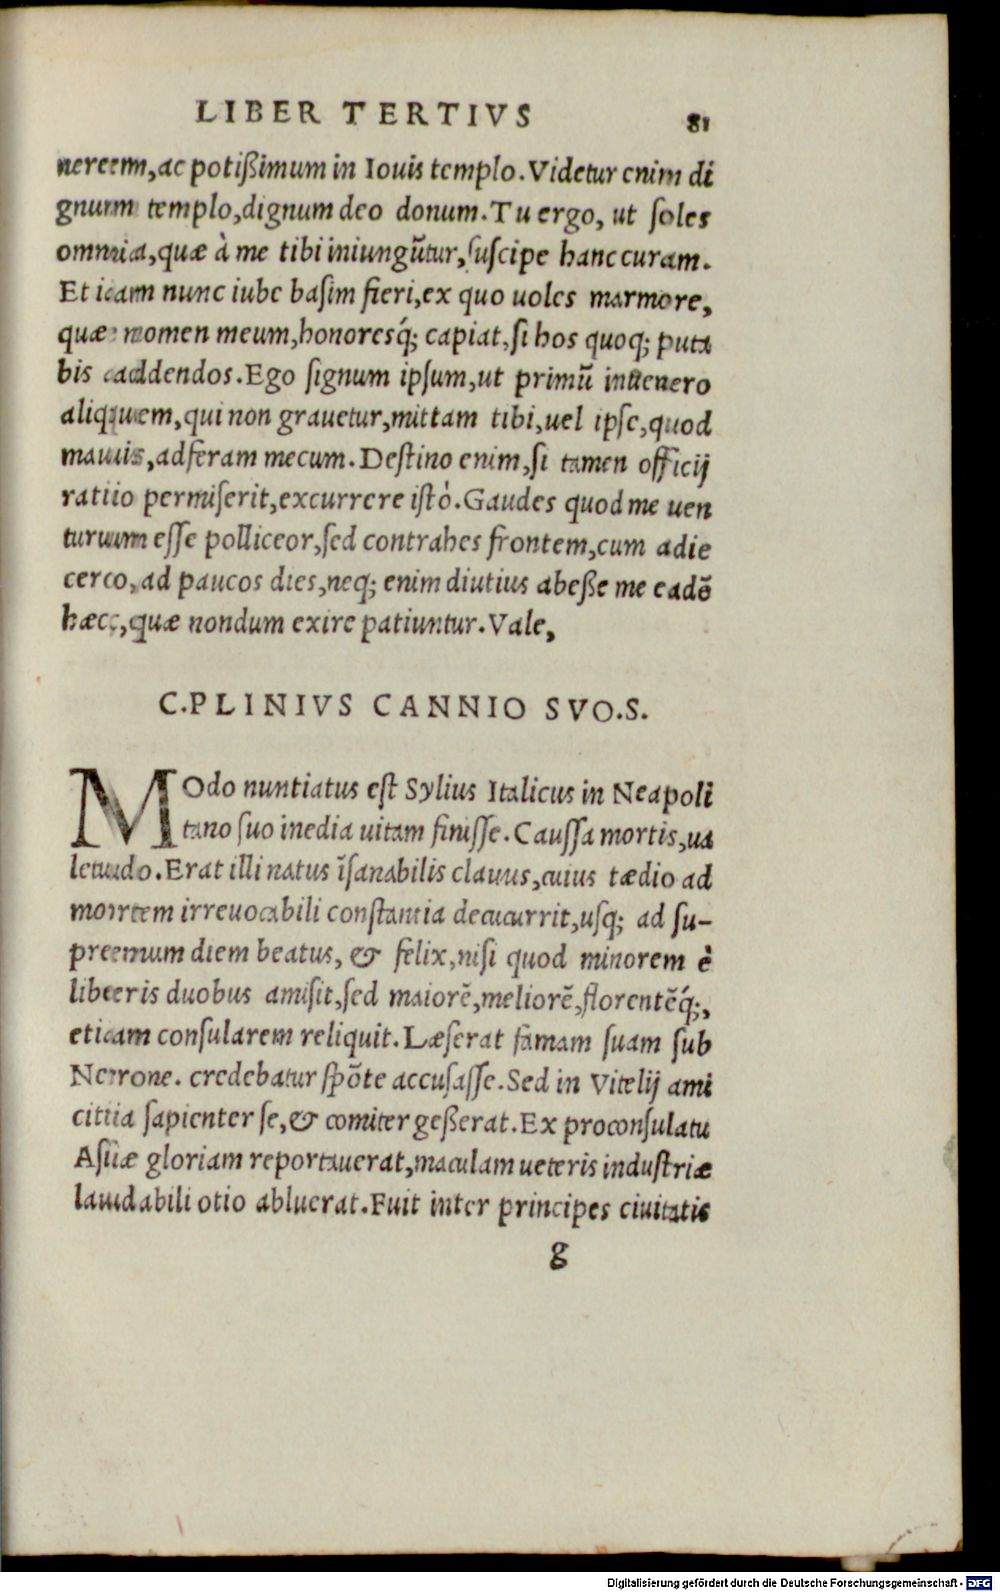 LIBER TERTIVS 81
nerem, ac potißimum in Iouis templo. Videtur enim di
gnum templo, dignum deo donum. Tu ergo, ut soles
omnia, quæ à me tibi iniungũtur, suscipe hanc curam.
Et iam nunc iube basim fieri, ex quo uoles marmore,
quæ nomen meum, honoresq́; capiat, si hos quoq; puta
bis addendos. Ego signum ipsum, ut primũ inuenero
aliquem, qui non grauetur, mittam tibi, uel ipse, quod
mauis, adferam mecum. Destino enim, si tamen officij
ratio permiserit, excurrere istò. Gaudes quod me uen
turum esse polliceor, sed contrahes frontem, cum adie
cero, ad paucos dies, neq; enim diutius abeße me eadē
hæc, quæ nondum exire patiuntur. Vale,
C. PLINIVS CANNIO SVO. S.
MOdo nuntiatus est Sylius Italicus in Neapoli
tano suo inedia uitam finisse. Caussa mortis, ua
letudo. Erat illi natus ĩsanabilis clauus, cuius tædio ad
mortem irreuocabili constantia decucurrit, usq; ad su-
premum diem beatus, & felix, nisi quod minorem è
liberis duobus amisit, sed maiorē, meliorē, florentēq́;,
etiam consularem reliquit. Læserat famam suam sub
Nerone. credebatur spõte accusasse. Sed in Vitelij ami
citia sapienter se, & comiter geßerat. Ex proconsulatu
Asiæ gloriam reportauerat, maculam ueteris industriæ
laudabili otio abluerat. Fuit inter principes ciuitatis
g
Digitalisierung gefördert durch die Deutsche Forschungsgemeinschaft - DFG